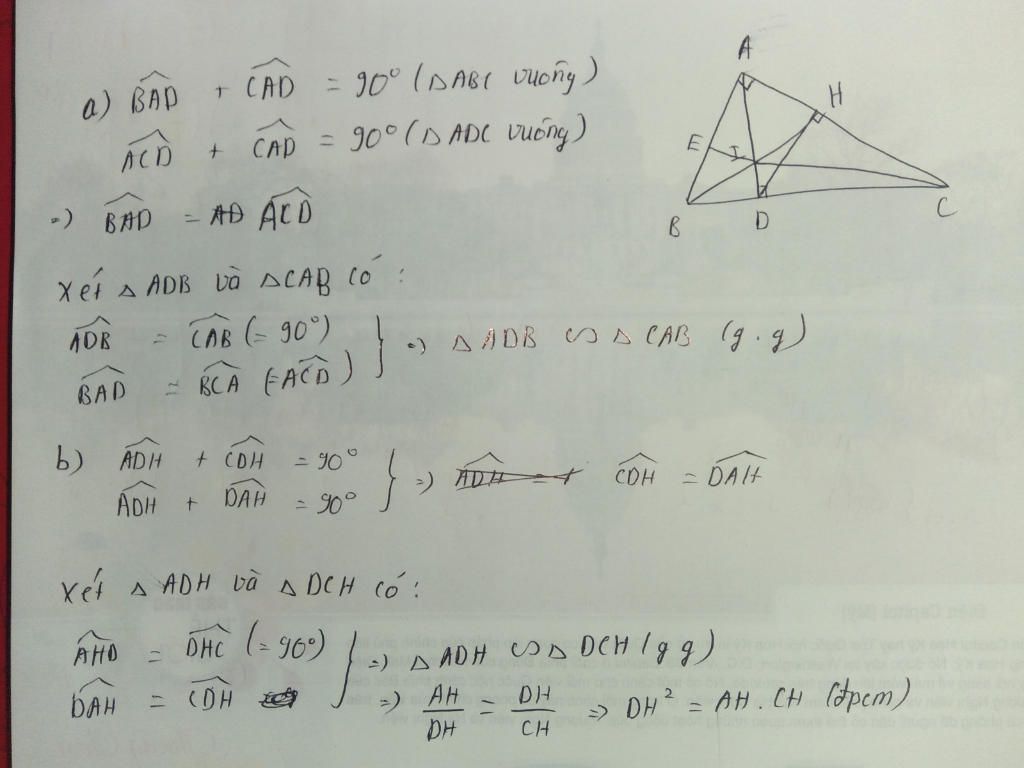 a) BAD + CAD = 90° (△ABC vuông)
ACD + CAD = 90° (△ADC vuông)
=) BAD = ACD
Xét △ADB và △CAB có:
ADB = CAB (= 90°)
BAD = BCA (=ACD) } =) △ADB ∽ △CAB (g.g)
b) ADH + CDH = 90°
ADH + DAH = 90° } =) CDH = DAH
Xét △ADH và △DCH có:
AHD = DHC (= 90°) } =) △ADH ∽ △DCH (g g)
DAH = CDH =) AH/DH = DH/CH => DH² = AH.CH (đpcm)
A
H
E
I
B
D
C